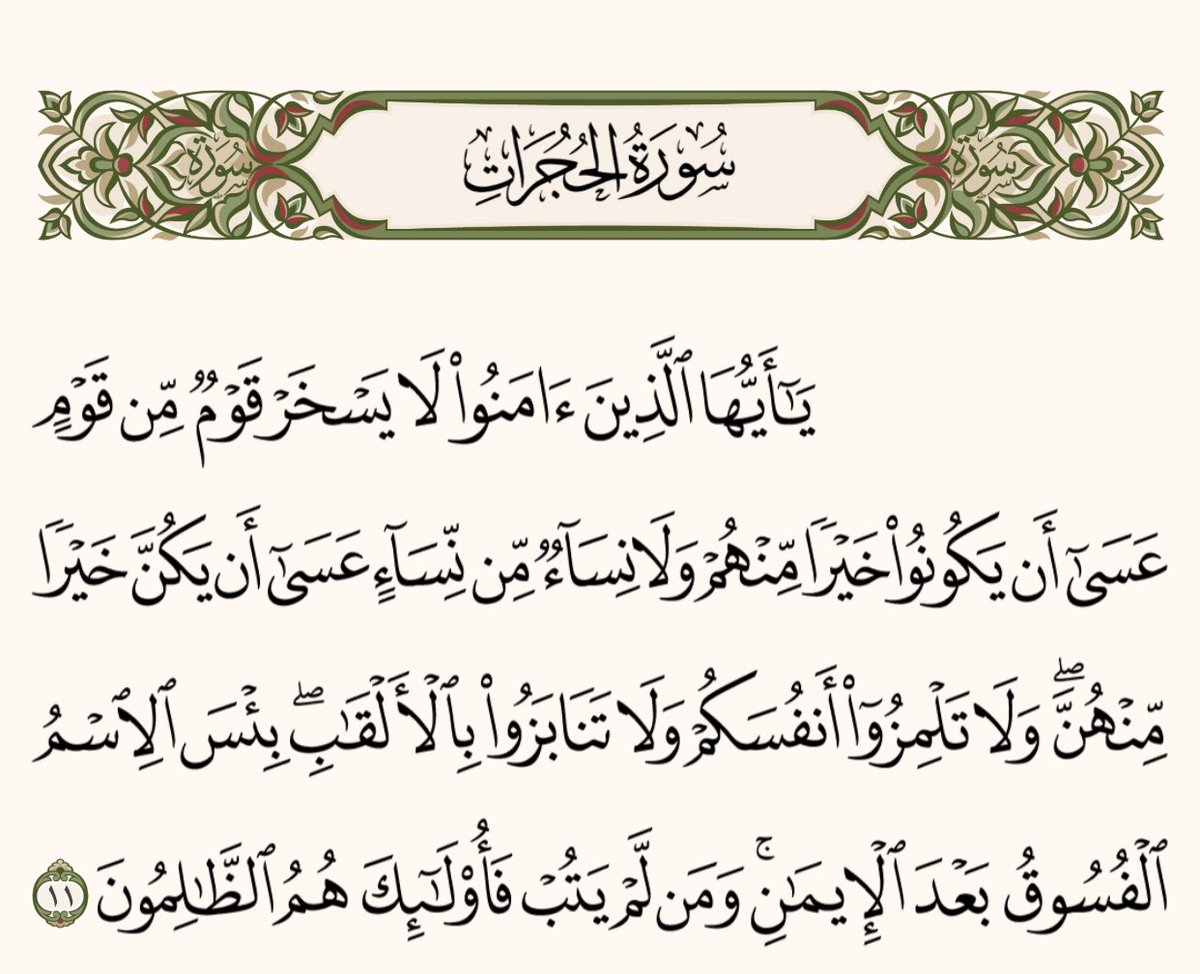 سُورَةُ الحُجُرَاتِ
سُورَة
سُورَة
يَـٰٓأَيُّهَا ٱلَّذِينَ ءَامَنُوا۟ لَا يَسْخَرْ قَوْمٌ مِّن قَوْمٍ
عَسَىٰٓ أَن يَكُونُوا۟ خَيْرًا مِّنْهُمْ وَلَا نِسَآءٌ مِّن نِّسَآءٍ عَسَىٰٓ أَن يَكُنَّ خَيْرًا
مِّنْهُنَّ ۖ وَلَا تَلْمِزُوٓا۟ أَنفُسَكُمْ وَلَا تَنَابَزُوا۟ بِٱلْأَلْقَـٰبِ ۖ بِئْسَ ٱلِٱسْمُ
ٱلْفُسُوقُ بَعْدَ ٱلْإِيمَـٰنِ ۚ وَمَن لَّمْ يَتُبْ فَأُو۟لَـٰٓئِكَ هُمُ ٱلظَّـٰلِمُونَ ١١